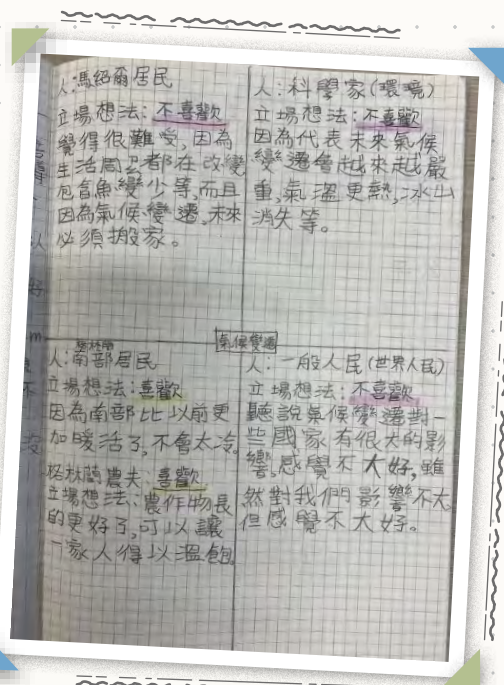 人:馬紹爾居民
立場想法:不喜歡
覺得很難受,因為
生活周召都在改變
包含魚變少等,而且
因為氣候變遷,未來
必須搬家。
人:科學家(環境)
立場想法:不喜歡
因為代表未來氣候
變遷會越來越嚴
重,氣溫更熱,冰山
消失等。
氣候變遷
格林蘭
人:南部居民
立場想法:喜歡
因為南部比以前更
加暖活了,不會太冷。
格林蘭農夫:喜歡
立場想法:農作物長
的更好了,可以讓
一家人得以溫飽。
人:一般人民(世界人民)
立場想法:不喜歡
聽說氣候變遷對一
些國家有很大的影
響,感覺不大好,雖
然對我們影響不大,
但感覺不太好。